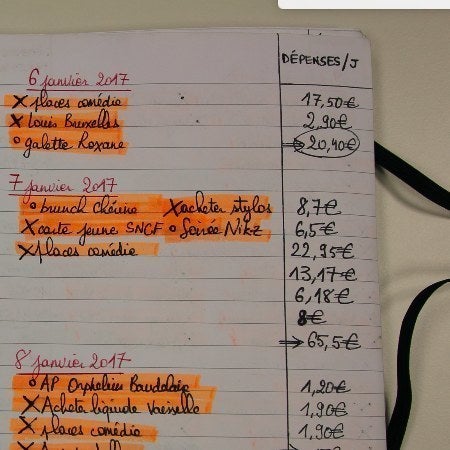 DÉPENSES/J
6 janvier 2017
× places comédie 17,50€
× Louis Bruxelles 2,90€
° galette Roxane → 20,40€
7 janvier 2017
° brunch Chérine × acheter stylos 8,7€
× carte jeune SNCF ° Soirée Nikz 6,5€
× places comédie 22,95€
13,17€
6,18€
8€
→ 65,5€
8 janvier 2017
° AP Orphelins Baudelaire 1,20€
× Acheter liquide vaisselle 1,90€
× places comédie 1,90€